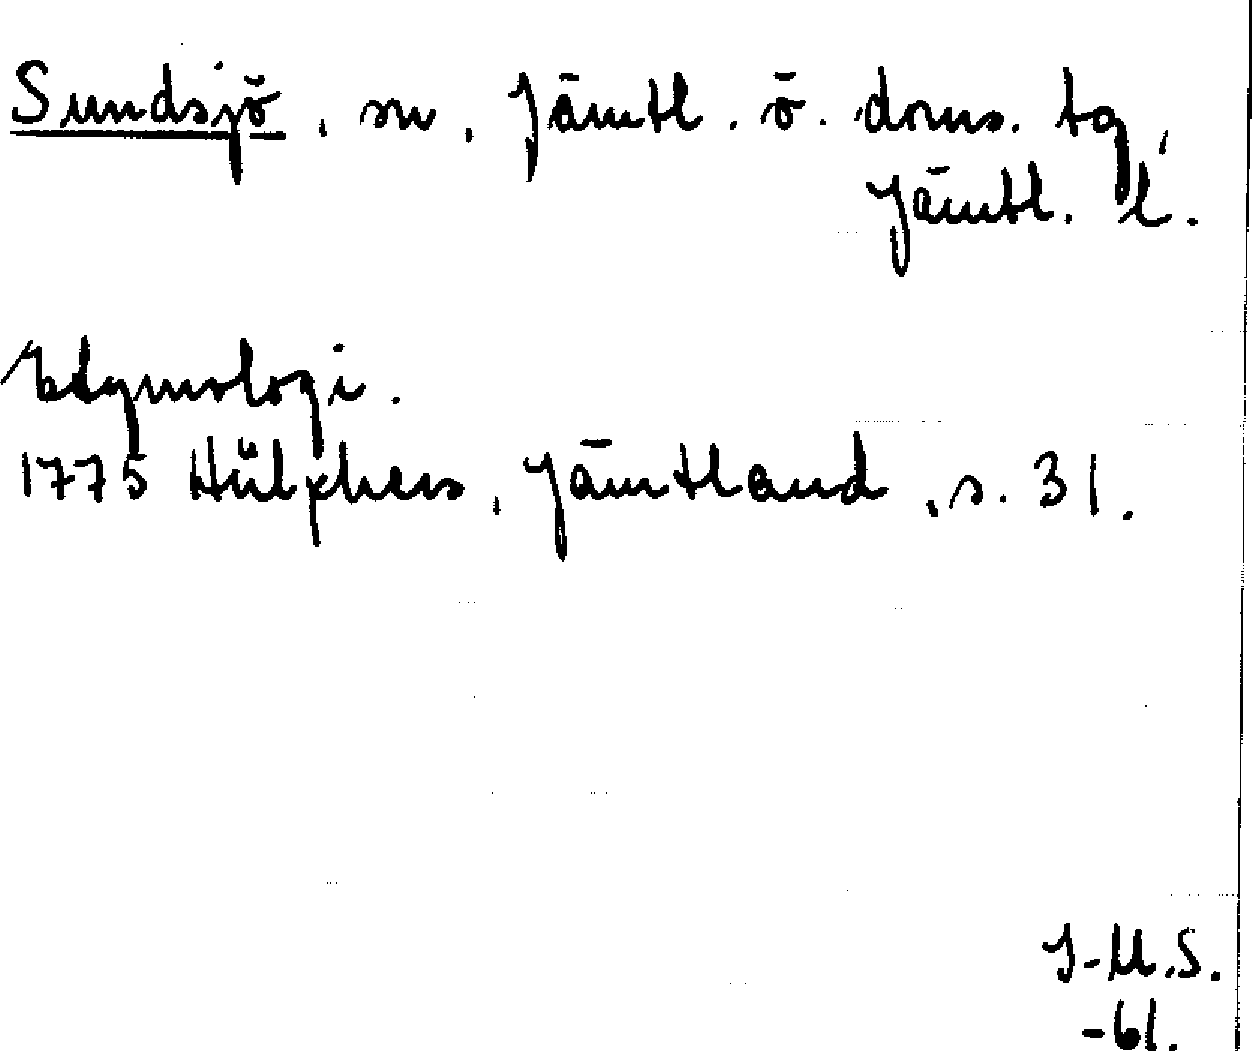 Sundsjö, sn, Jämtl. ö. doms. tg,
Jämtl. l.
Etymologi.
1775 Hülphers, Jämtland, s. 31.
I-M.S.
-61.